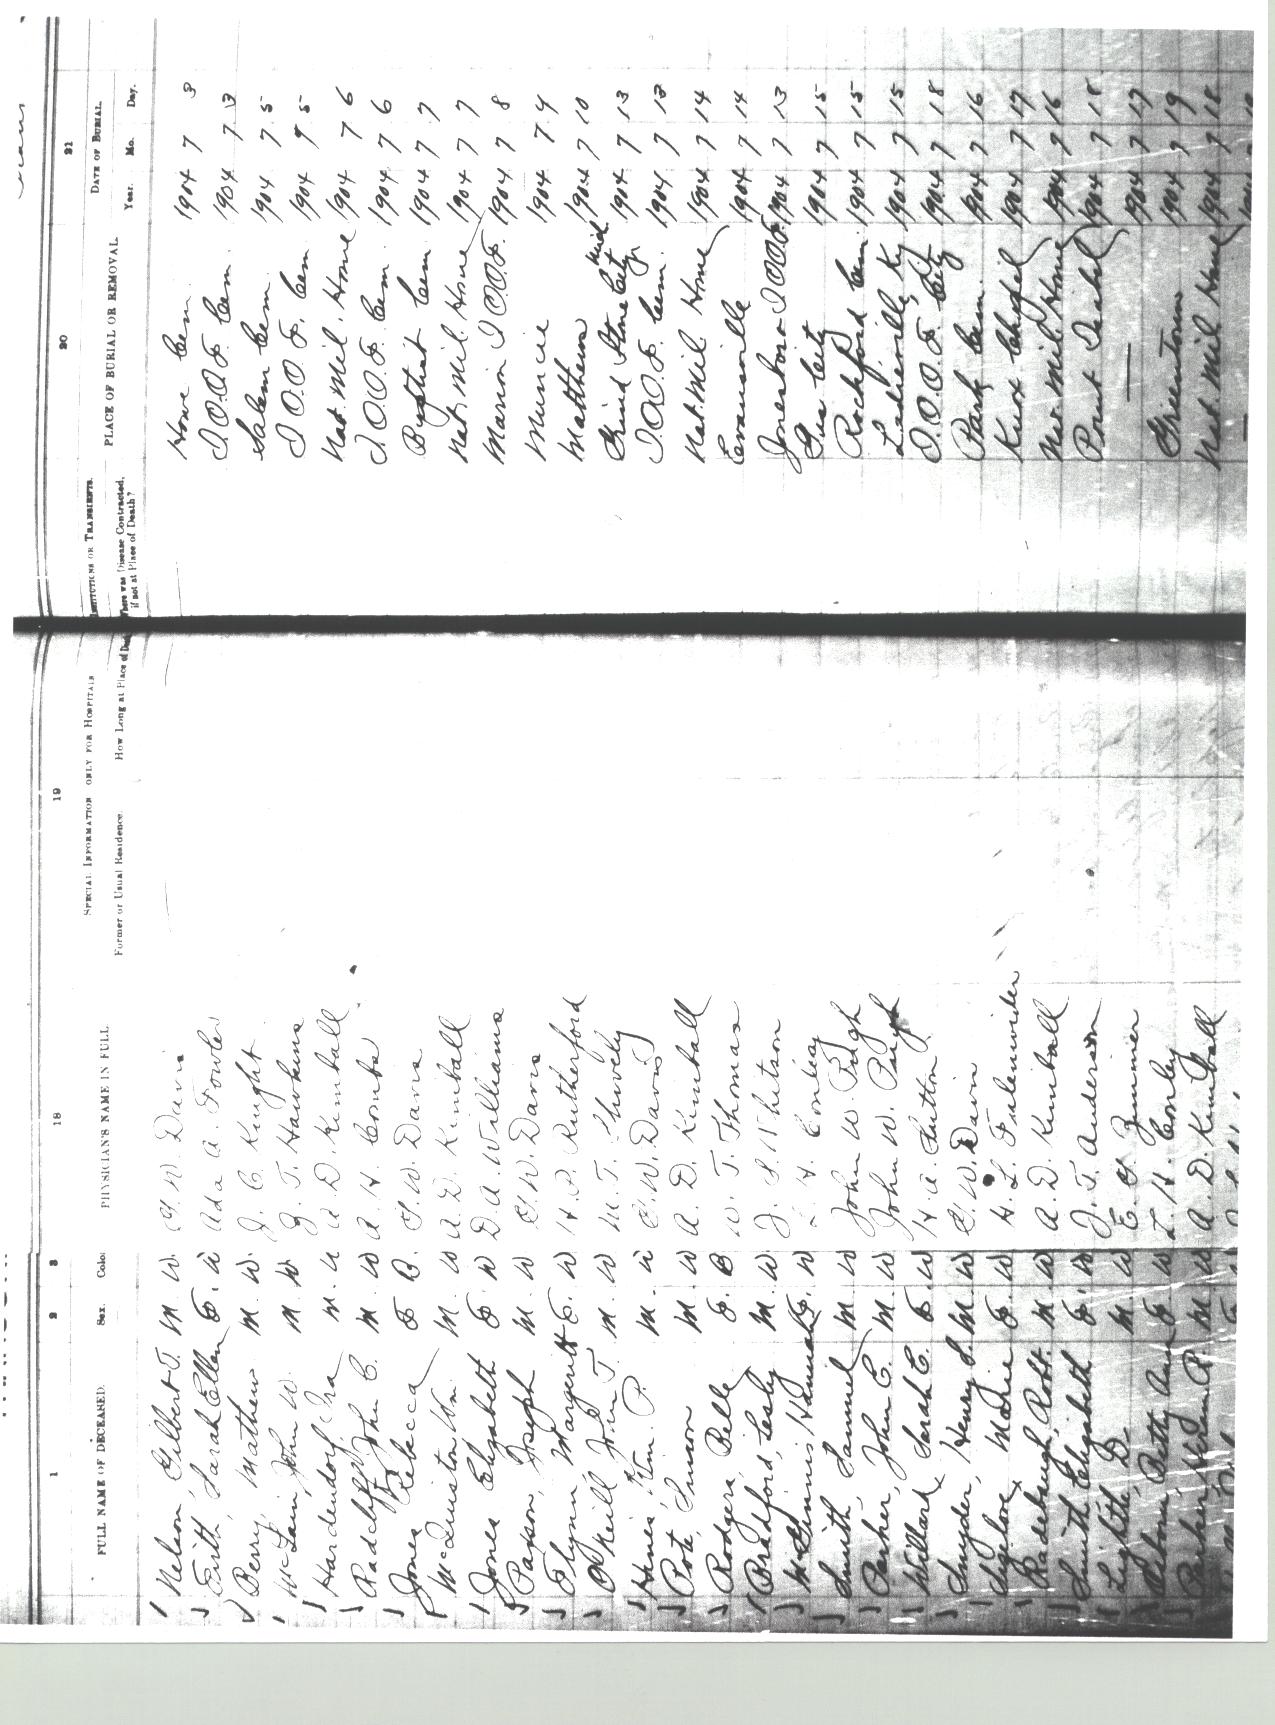 1 2 3 18 19 20 21
FULL NAME OF DECEASED. Sex. Color PHYSICIAN'S NAME IN FULL SPECIAL INFORMATION ONLY FOR HOSPITALS INSTITUTIONS OR TRANSIENTS. PLACE OF BURIAL OR REMOVAL DATE OF BURIAL
Former or Usual Residence. How Long at Place of Death Where was Disease Contracted, if not at Place of Death? Year. Mo. Day.
Nelson, Gilbert T. M. W. G. W. Davis Howe Cem. 1904 7 3
Firth, Sarah Ellen F. W Ada A. Fowler I.O.O.F. Cem. 1904 7 13
Berry, Mathew M. W. J. C. Knight Salem Cem 1904 7 5
McLain, John W. M. W T. Hawkins I O O F. Cem 1904 7 5
Hardendorf, Ira M. W A. D. Kimball Nat. Mil. Home 1904 7 6
Radcliff, John C. M. W A. H. Combs I O O F. Cem. 1904 7 6
Jones Rebecca F B. G. W. Davis Baptist Cem 1904 7 7
McQuiston Wm. M. W A. D. Kimball Nat. Mil. Home 1904 7 7
Jones Elizabeth F. W D. A. Williams Marion I O.O.F. 1904 7 8
Paxson, Joseph M. W G. W. Davis Muncie 1904 7 9
Flynn Margerite F. W H. P. Rutherford Matthews 1904 7 10
O'Neill John T. M. W M. T. Shively Grind Stone City Mich 1904 7 13
Hines, Wm. P. M. W G. W. Davis I.O.O.F. Cem. 1904 7 13
Pote, Simon M. W A. D. Kimball Nat. Mil. Home 1904 7 14
Rodgers Belle F. B W. T. Thomas Evansville 1904 7 14
Bradford, Lesly M. W. J. S. Whitson Jonesboro I O O F. 1904 7 13
McGinnis Hannah F. W H. Conley Gas City 1904 7 15
Smith Samuel M. W John W. Pugh Rockford Cem. 1904 7 15
Parker, John C. M. W. John W. Pugh Ky 1904 7 15
Willard Sarah E. F. W H. A. Sutton I.O.O.F. City 1904 7 18
Snyder, Henry S. M. W. G. W. Davis Park Cem. 1904 7 16
Madie F. W. H. L. Falenwider Chapel 1904 7 17
Radebaugh, Robt. M. W. A. D. Kimball Nat. Mil. Home 1904 7 16
Smith Elizabeth F. W. J. T. Anderson Point Isabel 1904 7 18
D M W E. G. Zimmer — 1904 7 17
Betty Ann F W L. H. Conley Greentown 1904 7 19
P. M W A. D. Kimball Nat. Mil. Home 1904 7 18